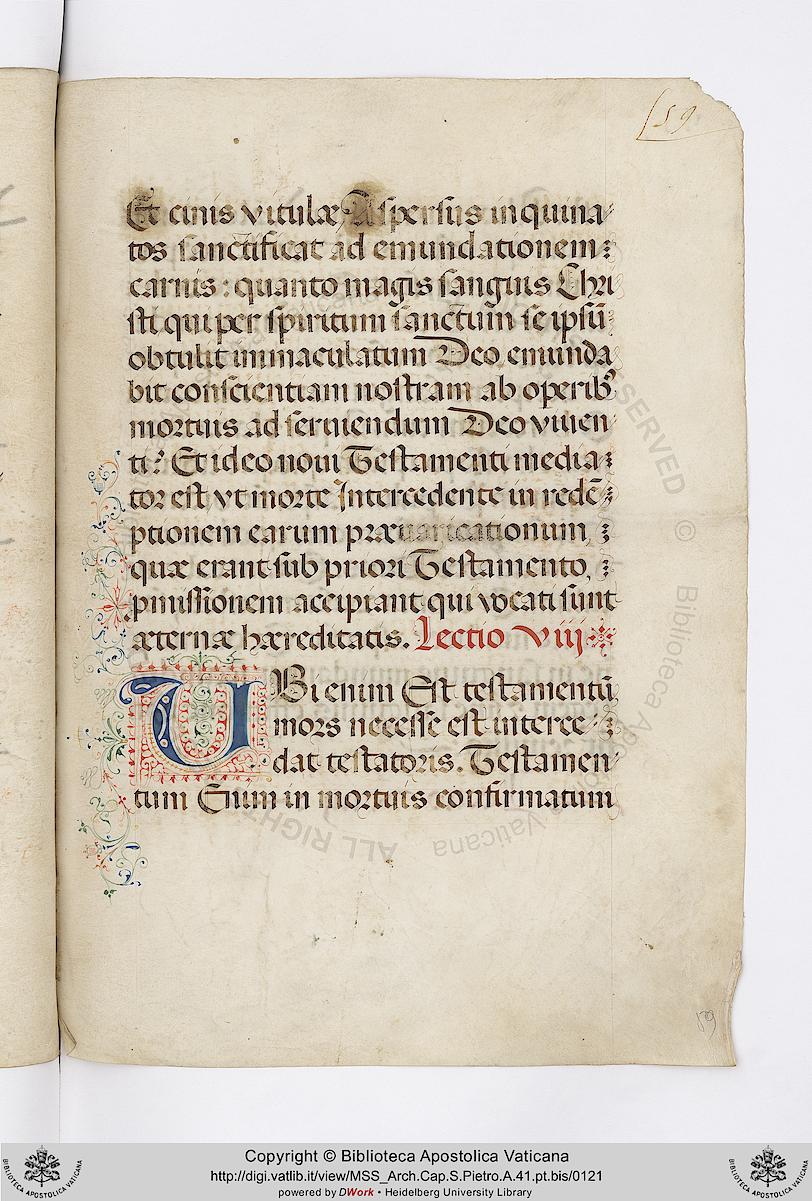 159
Et cinis vitulæ Aspersus inquina-
tos sanctificat ad emundationem:
carnis: quanto magis sanguis Chri
sti qui per spiritum sanctum se ipsū
obtulit immaculatum Deo emunda
bit conscientiam nostram ab operibꝰ
mortuis ad seruiendum Deo viuen
ti? Et ideo noui Testamenti media-
tor est, vt morte Intercedente in redē-
ptionem earum præuaricationum,
quæ erant sub priori Testamento,
pmissionem accipiant qui vocati sunt
æternæ hæreditatis. Lectio Viij
UBi enim Est testamentū
mors necesse est interce-
dat testatoris. Testamen-
tum Enim in mortuis confirmatum
159
Copyright © Biblioteca Apostolica Vaticana
http://digi.vatlib.it/view/MSS_Arch.Cap.S.Pietro.A.41.pt.bis/0121
powered by DWork • Heidelberg University Library
BIBLIOTECA APOSTOLICA VATICANA
BIBLIOTECA APOSTOLICA VATICANA